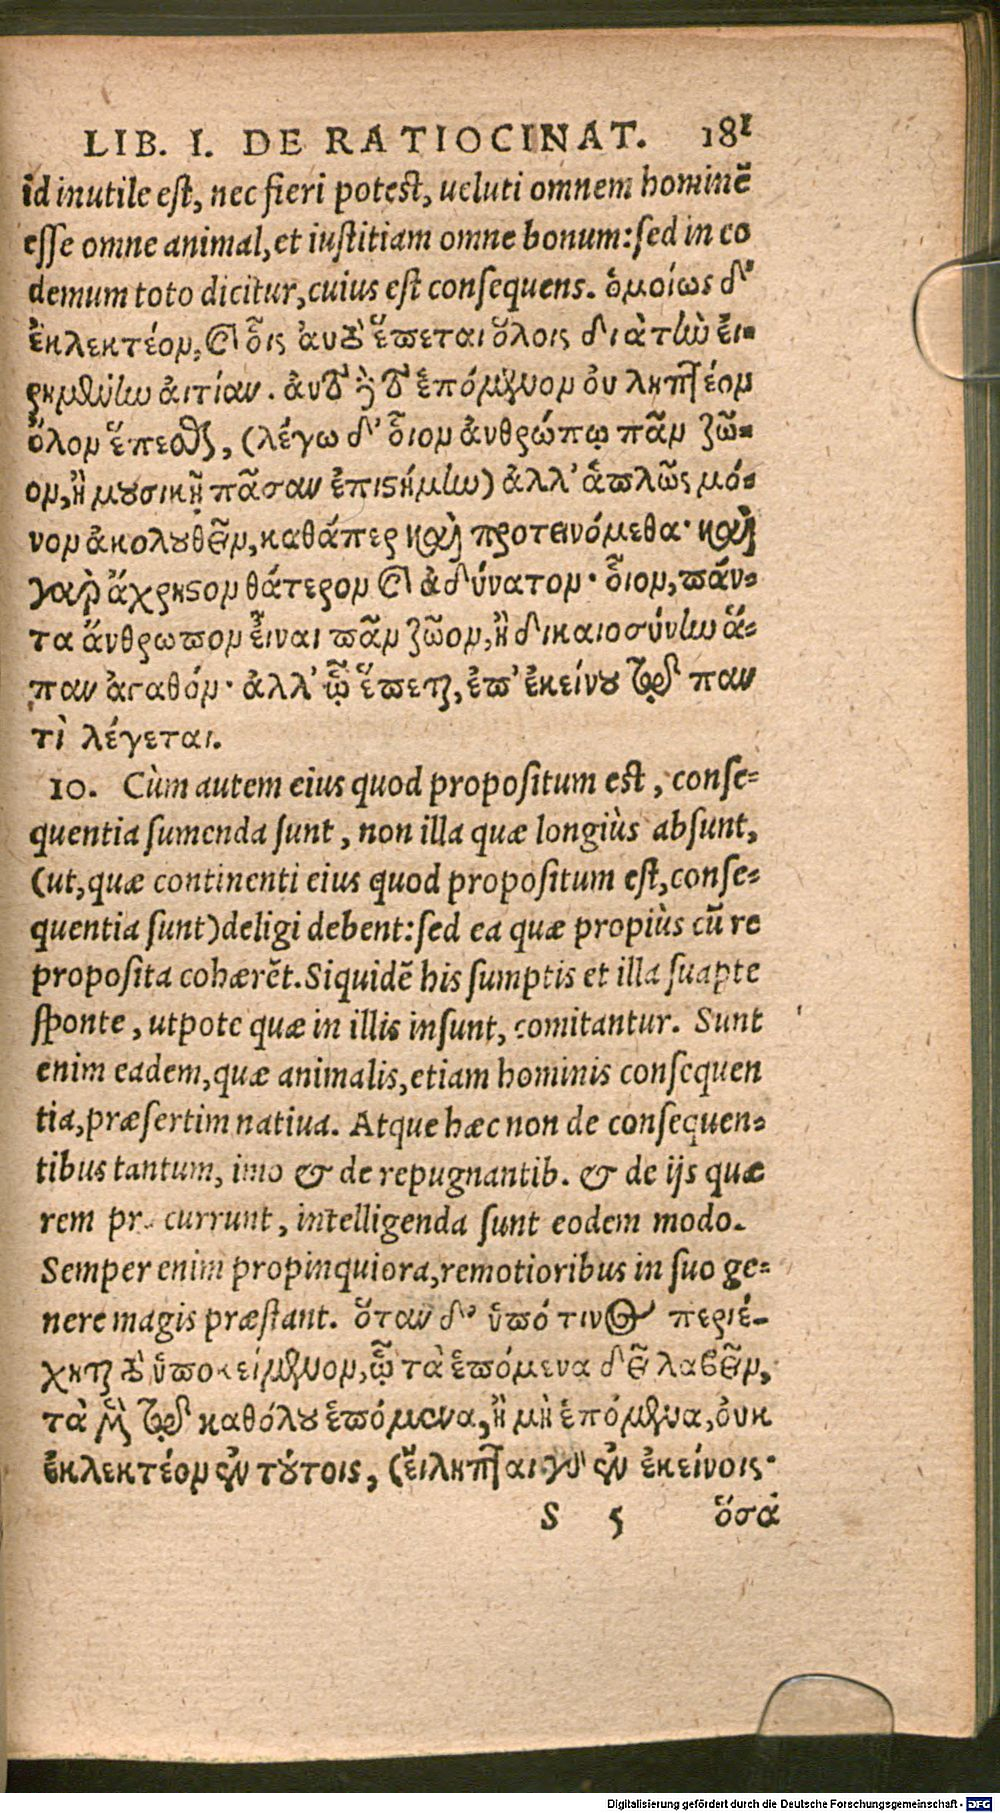 LIB. I. DE RATIOCINAT. 181
id inutile est, nec fieri potest, ueluti omnem hominē
esse omne animal, et iustitiam omne bonum: sed in eo
demum toto dicitur, cuius est consequens. ὁμοίως δ᾽
ἐκλεκτέον, καὶ οἷς αὐτὸ ἕπεται ὅλοις διὰ τὴν εἰ-
ρημένην αἰτίαν. αὐτὸ δὲ τὸ ἑπόμενον οὐ ληπτέον
ὅλον ἕπεσθαι, (λέγω δ᾽ οἷον ἀνθρώπῳ πᾶν ζῶ-
ον, ἢ μουσικῇ πᾶσαν ἐπιστήμην) ἀλλ᾽ ἁπλῶς μό-
νον ἀκολουθεῖν, καθάπερ καὶ προτεινόμεθα· καὶ
γὰρ ἄχρηστον θάτερον καὶ ἀδύνατον· οἷον, πάν-
τα ἄνθρωπον εἶναι πᾶν ζῶον, ἢ δικαιοσύνην ἅ-
παν ἀγαθόν· ἀλλ᾽ ᾧ ἕπεται, ἐπ᾽ ἐκείνου τὸ παν
τὶ λέγεται.
10. Cùm autem eius quod propositum est, conse-
quentia sumenda sunt, non illa quæ longiùs absunt,
(ut, quæ continenti eius quod propositum est, conse-
quentia sunt) deligi debent: sed ea quæ propiùs cū re
proposita cohærēt. Siquidē his sumptis et illa suapte
sponte, utpote quæ in illis insunt, comitantur. Sunt
enim eadem, quæ animalis, etiam hominis consequen
tia, præsertim natiua. Atque hæc non de consequen-
tibus tantum, imo & de repugnantib. & de ijs quæ
rem currunt, intelligenda sunt eodem modo.
Semper enim propinquiora, remotioribus in suo ge-
nere magis præstant. ὅταν δ᾽ ὑπό τινος περιέ-
χηται τὸ ὑποκείμενον, ᾧ τὰ ἑπόμενα δεῖ λαβεῖν,
τὰ μὲν τῷ καθόλου ἑπόμενα, ἢ μὴ ἑπόμενα, οὐκ
ἐκλεκτέον ἐν τούτοις, (εἴληπται γὰρ ἐν ἐκείνοις·
S 5 ὅσα
Digitalisierung gefördert durch die Deutsche Forschungsgemeinschaft - DFG